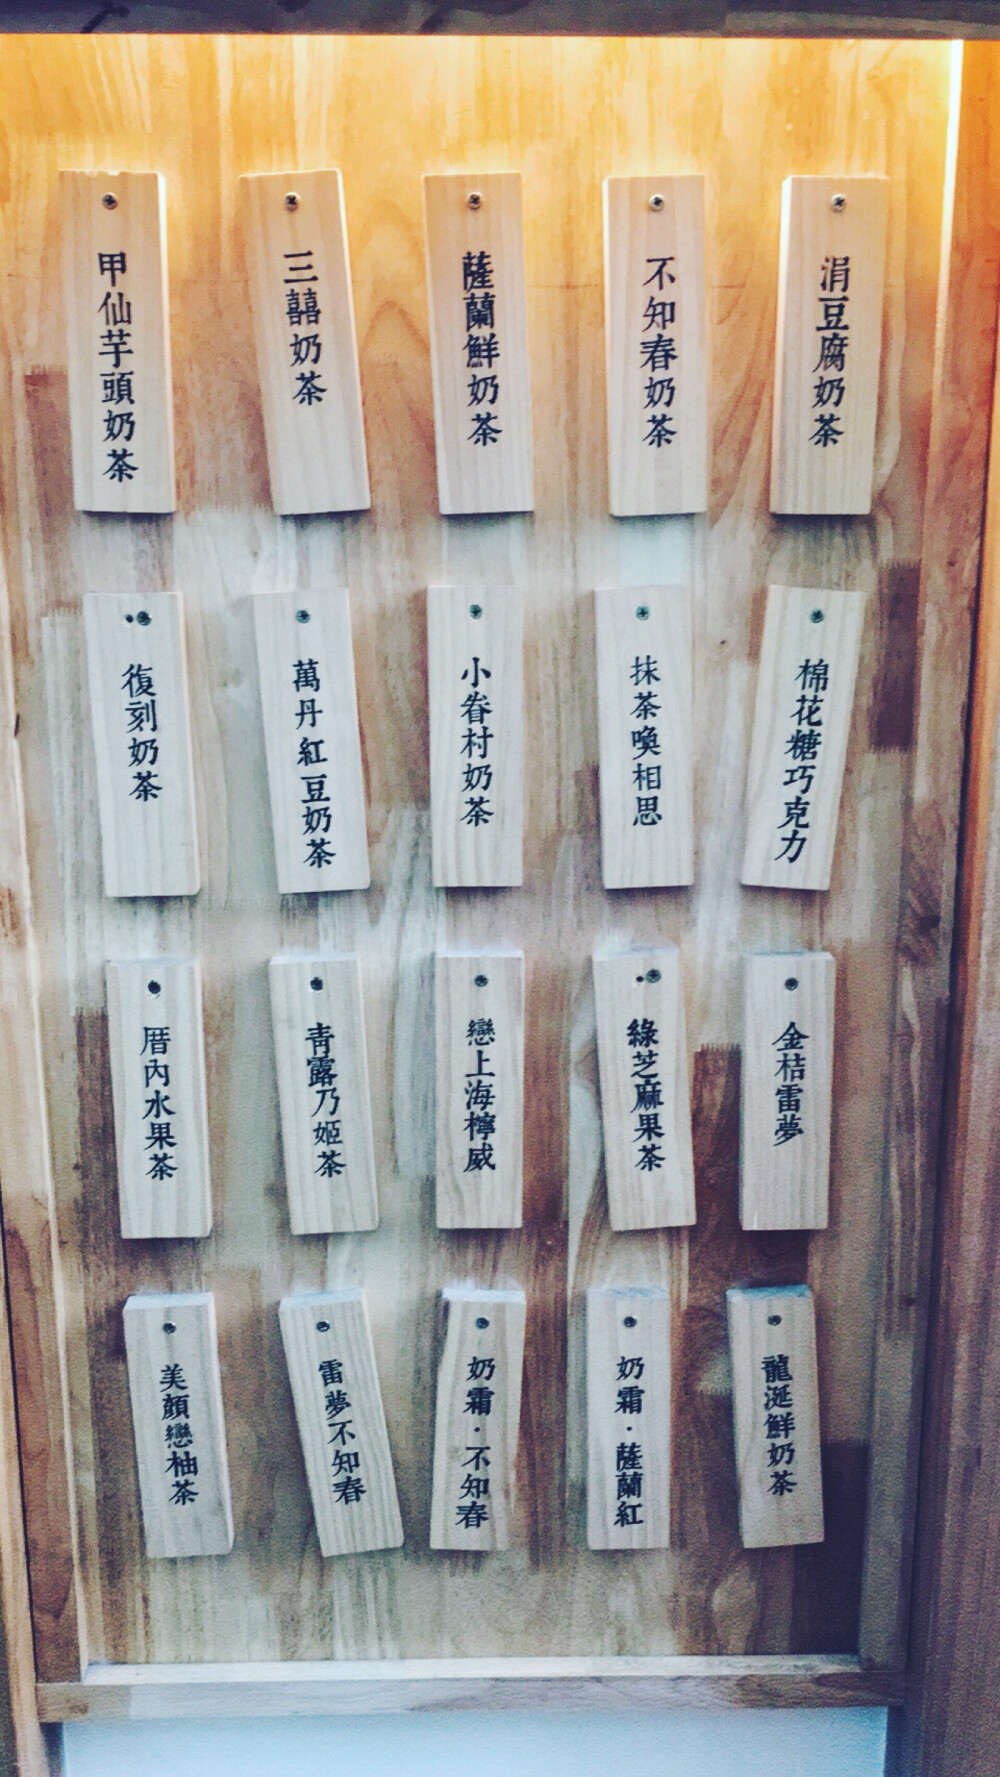 甲仙芋頭奶茶
三囍奶茶
薩蘭鮮奶茶
不知春奶茶
涓豆腐奶茶
復刻奶茶
萬丹紅豆奶茶
小眷村奶茶
抹茶喚相思
棉花糖巧克力
厝內水果茶
青露乃姬茶
戀上海檸威
綠芝麻果茶
金桔雷夢
美顏戀柚茶
雷夢不知春
奶霜·不知春
奶霜·薩蘭紅
龍涎鮮奶茶